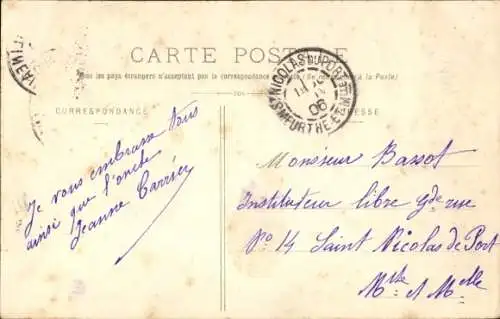 CARTE POSTALE
Tous les pays étrangers n'acceptent pas la correspondance
à la Poste)
CORRESPONDANCE
ADRESSE
NICOLAS DU PORT
06
MEURTHE-ET-M
Je vous embrasse tous
ainsi que l'oncle
Jeanne Carrier
Monsieur Bassot
Instituteur libre Gde rue
No 14 Saint Nicolas de Port
Mthe et Melle